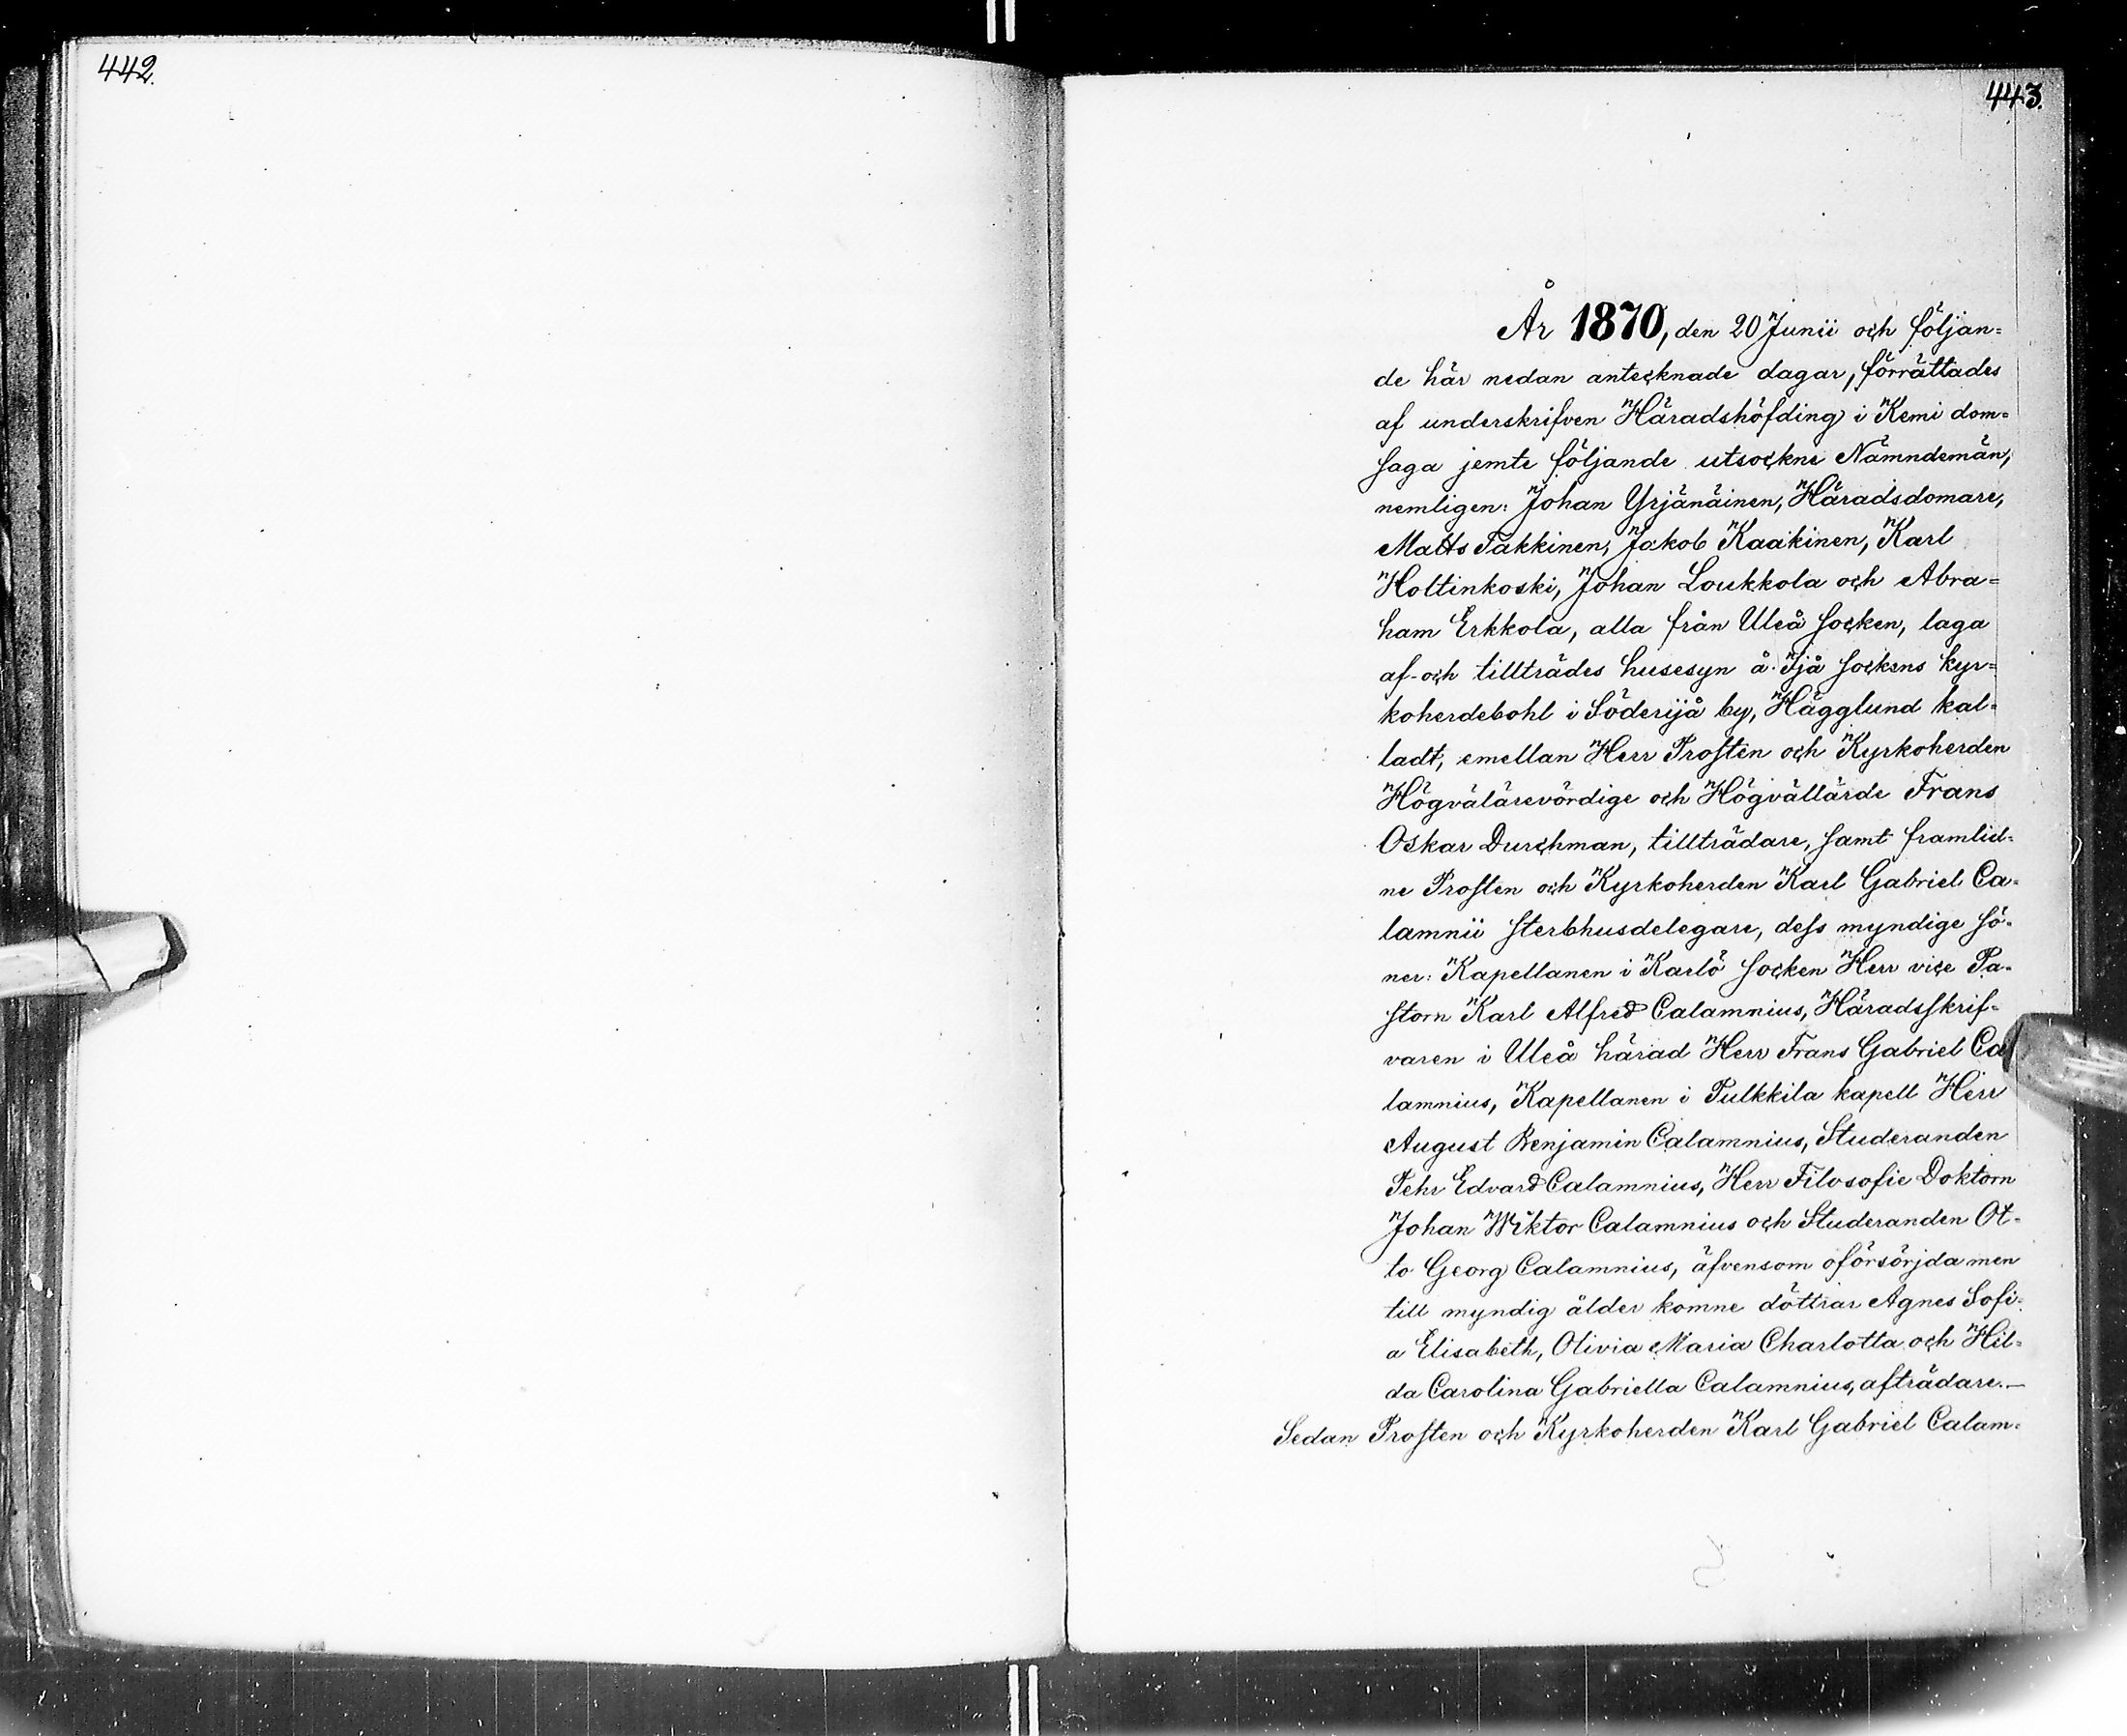 442.
443.
År 1870, den 20 Junii och följan=
de här nedan antecknade dagar, förrättades
af underskrifven Häradshöfding i Kemi dom=
saga jemte följande utsockne Nämndemän,
nemligen: Johan Yrjänäinen, Häradsdomare,
Matts Takkinen, Jakob Kaakinen, Karl
Holtinkoski, Johan Loukkola och Abra=
ham Erkkola, alla från Uleå socken, laga
af- och tillträdes husesyn å Ijå sockens kyr=
koherdebohl i Söderijå by, Hägglund kal=
ladt, emellan Herr Prosten och Kyrkoherden
Högvälärevördige och Högvällärde Frans
Oskar Durchman, tillträdare, samt framlid=
ne Prosten och Kyrkoherden Karl Gabriel Ca=
lamnii sterbhusdelegare, dess myndige sö=
ner: Kapellanen i Karlö socken Herr vice Pa=
storn Karl Alfred Calamnius, Häradsskrif=
varen i Uleå härad Herr Frans Gabriel Ca
lamnius, Kapellanen i Pulkkila kapell Herr
August Benjamin Calamnius, Studeranden
Pehr Edvard Calamnius, Herr Filosofie Doktorn
Johan Wiktor Calamnius och Studeranden Ot=
to Georg Calamnius, äfvensom oförsörjda men
till myndig ålder komne döttrar Agnes Sofi=
a Elisabeth, Olivia Maria Charlotta och Hil=
da Carolina Gabriella Calamnius, afträdare.—
Sedan Prosten och Kyrkoherden Karl Gabriel Calam=